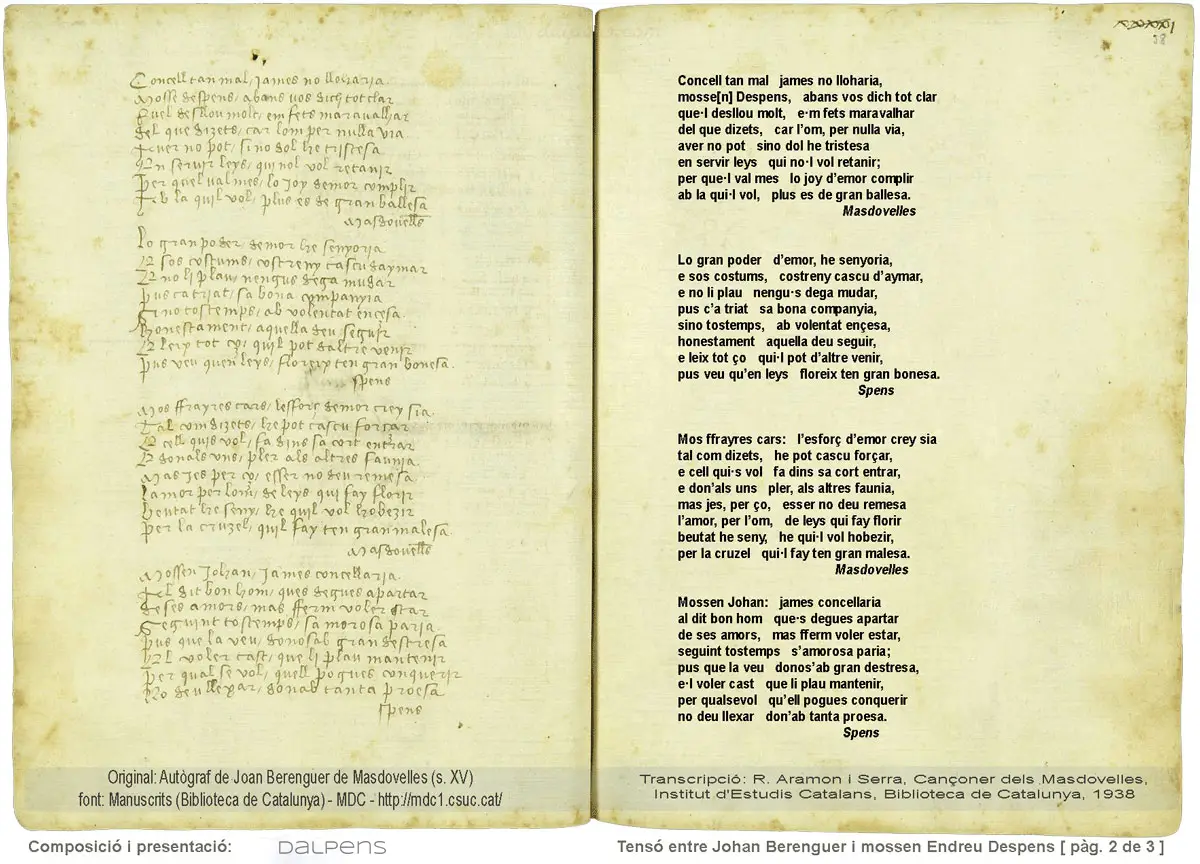 Concell tan mal, james no lloharia.
Mosse despens, abans vos dich tot clar
Quel desllou molt, em fets maravalhar
del que dizets, car lom per nulla via
aver no pot, sino dol he tristesa
En servir leys, qui nol vol retanir
Per quel val mes, lo joy demor complir
Ab la quil vol, plus es de gran ballesa
Masdovells
Lo gran poder, demor he senyoria
E sos costums, costreny cascu daymar
E no li plau, nengus dega mudar
pus ca triat, sa bona companyia
Sino tostemps, ab volentat encesa
honestament, aquella deu seguir
E leix tot ço, quil pot daltre venir
pus veu quen leys, floreix ten gran bonesa.
Spens
Mos ffrayres cars, lesforç demor crey sia
Tal com dizets, he pot cascu forçar
E cell quis vol, fa dins sa cort entrar
E donals uns, pler als altres faunia
Mas jes per ço, esser no deu remesa
lamor per lom, de leys qui fay florir
beutat he seny, he quil vol hobezir
Per la cruzel, quil fay ten gran malesa.
Masdovells
Mossen Johan, james concellaria
Al dit bon hom, ques degues apartar
de ses amors, mas fferm voler star
Seguint tostemps, samorosa paria
Pus que la veu, donosab gran destresa
El voler cast, que li plau mantenir
Per qual se vol, quell pogues conquerir
No deu llexar, donab tanta proesa
Spens
Original: Autògraf de Joan Berenguer de Masdovelles (s. XV)
font: Manuscrits (Biblioteca de Catalunya) - MDC - http://mdc1.csuc.cat/
38
Concell tan mal james no lloharia,
mosse[n] Despens, abans vos dich tot clar
que·l desllou molt, e·m fets maravalhar
del que dizets, car l'om, per nulla via,
aver no pot sino dol he tristesa
en servir leys qui no·l vol retanir;
per que·l val mes lo joy d'emor complir
ab la qui·l vol, plus es de gran ballesa.
Masdovelles
Lo gran poder d'emor, he senyoria,
e sos costums, costreny cascu d'aymar,
e no li plau nengu·s dega mudar,
pus c'a triat sa bona companyia,
sino tostemps, ab volentat ençesa,
honestament aquella deu seguir,
e leix tot ço qui·l pot d'altre venir,
pus veu qu'en leys floreix ten gran bonesa.
Spens
Mos ffrayres cars: l'esforç d'emor crey sia
tal com dizets, he pot cascu forçar,
e cell qui·s vol fa dins sa cort entrar,
e don'als uns pler, als altres faunia,
mas jes, per ço, esser no deu remesa
l'amor, per l'om, de leys qui fay florir
beutat he seny, he qui·l vol hobezir,
per la cruzel qui·l fay ten gran malesa.
Masdovelles
Mossen Johan: james concellaria
al dit bon hom que·s degues apartar
de ses amors, mas fferm voler estar,
seguint tostemps s'amorosa paria;
pus que la veu donos'ab gran destresa,
e·l voler cast que li plau mantenir,
per qualsevol qu'ell pogues conquerir
no deu llexar don'ab tanta proesa.
Spens
Transcripció: R. Aramon i Serra, Cançoner dels Masdovelles,
Institut d'Estudis Catalans, Biblioteca de Catalunya, 1938
Composició i presentació: DALPENS
Tensó entre Johan Berenguer i mossen Endreu Despens [ pàg. 2 de 3 ]